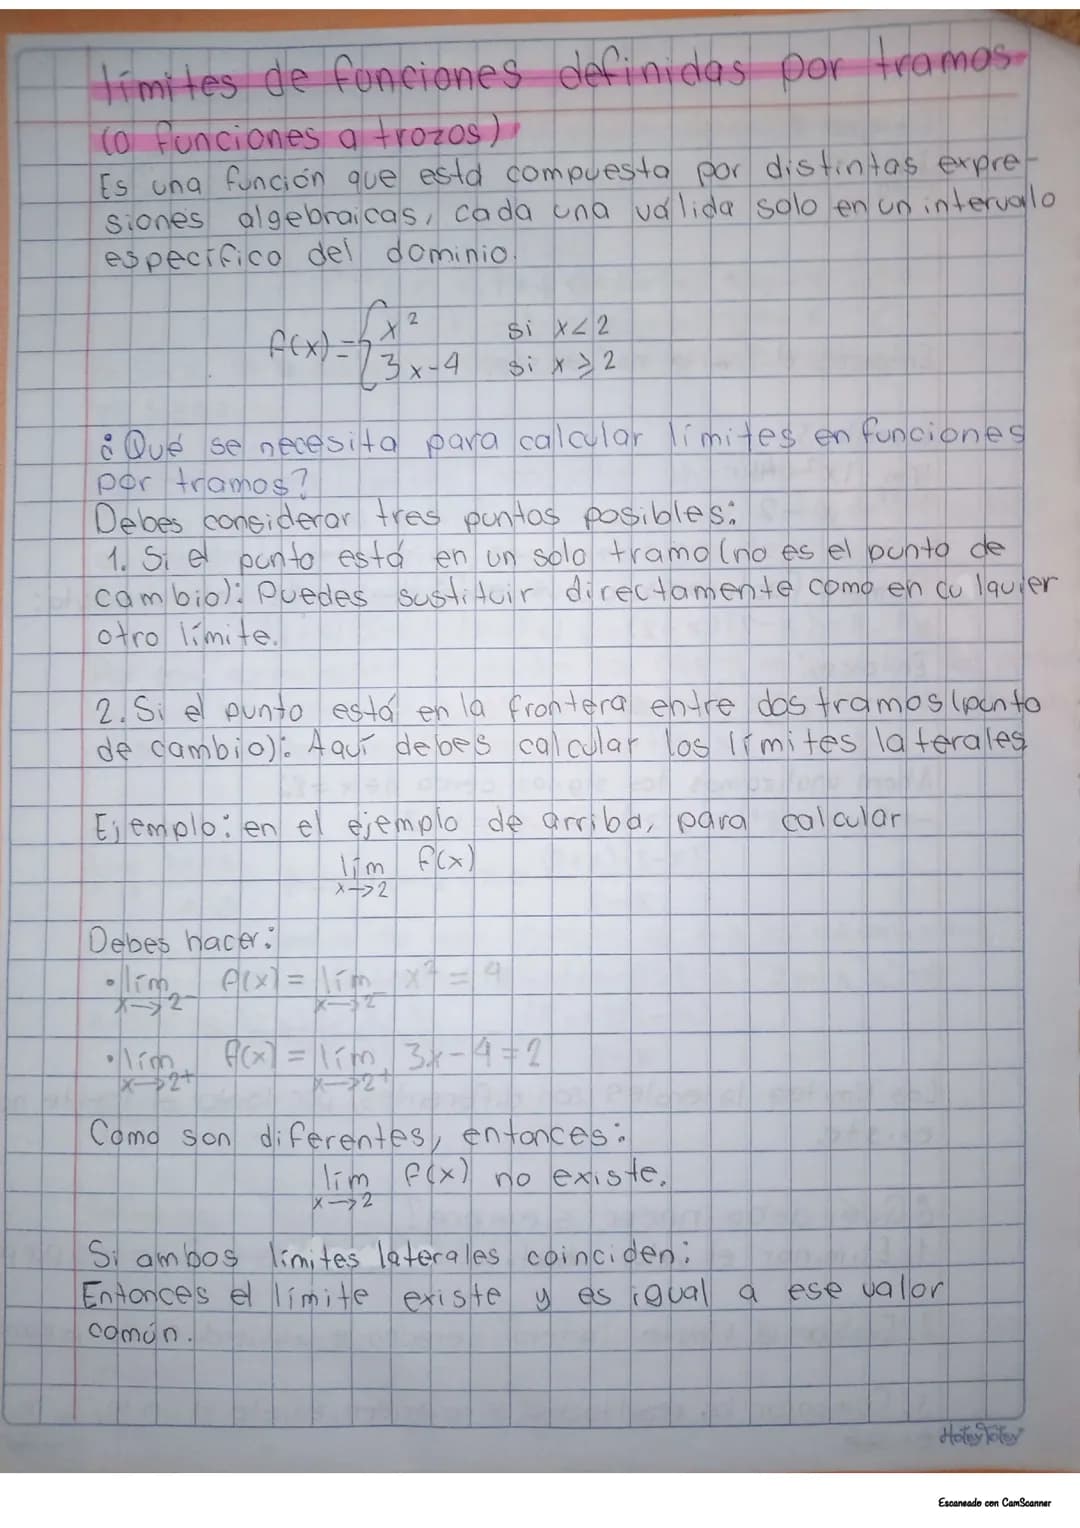 límites de funciones definidas por tramos
(o funciones a trozos)
Es una función que está compuesta por distintas expre-
siones algebraicas, cada una válida solo en un intervalo
específico del dominio.
f(x) = { x² si x < 2
3x-4 si x ≥ 2
¿Qué se necesita para calcular límites en funciones
por tramos?
Debes considerar tres puntos posibles:
1. Si el punto está en un solo tramo (no es el punto de
cambio): Puedes sustituir directamente como en cu lquier
otro límite.
2. Si el punto está en la frontera entre dos tramos (punto
de cambio): Aquí debes calcular los límites laterales
Ejemplo: en el ejemplo de arriba, para calcular
lím f(x)
x→2
Debes hacer:
• lím f(x) = lím x² = 4
x→2⁻ x→2⁻
• lím f(x) = lím 3x-4=2
x→2+ x→2+
Como son diferentes, entonces:
lím f(x) no existe.
x→2
Si ambos límites laterales coinciden:
Entonces el límite existe y es igual a ese valor
común.
HoteyTotey
Escaneado con CamScanner